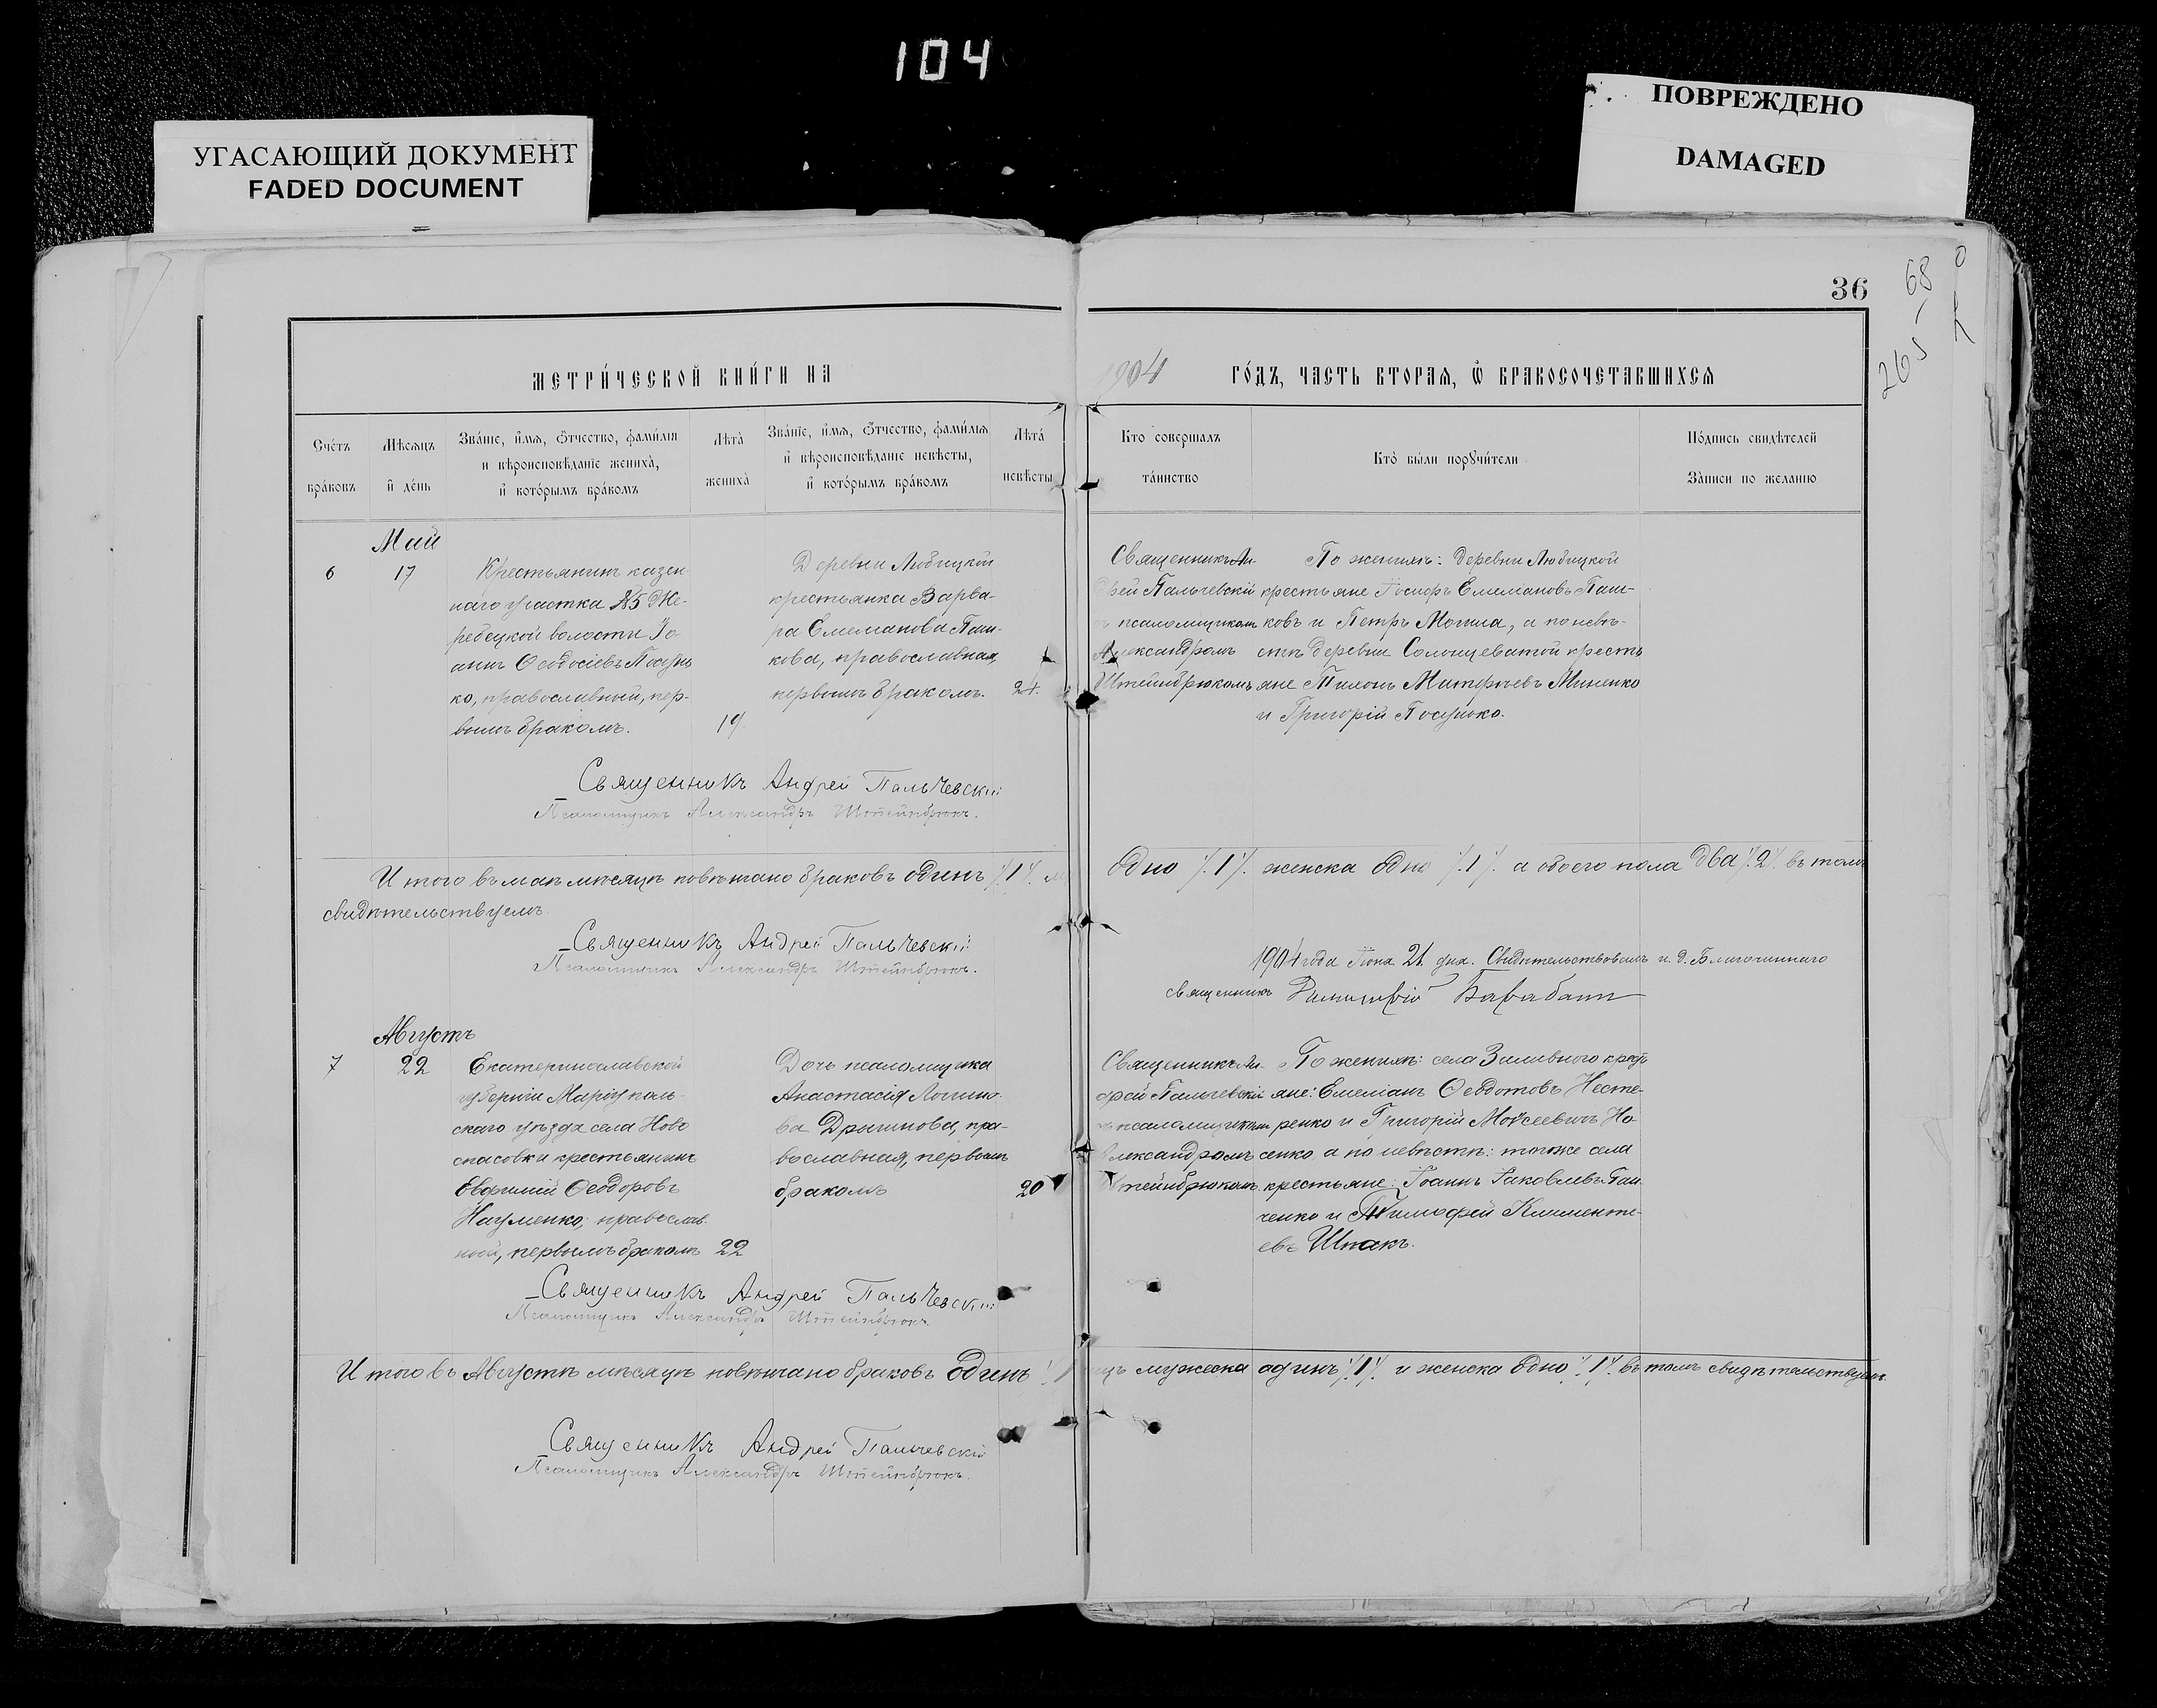 104
УГАСАЮЩИЙ ДОКУМЕНТ
FADED DOCUMENT
ПОВРЕЖДЕНО
DAMAGED
36
265-68
МЕТРИ́ЧЕСКОЙ КНИ́ГИ НА
1904 ГО́ДЪ, ЧАСТЬ ВТОРАЯ, Ѡ БРАКОСОЧЕТАВШИХСЯ
Сче́тъ бра́ковъ
Мѣсяцъ и де́нь
Зва́нїе, и́мя, ѻ́тчество, фами́лїя
и вѣроисповѣданїе жениха̀,
и кото́рымъ бра́комъ
Лѣта̀ жениха̀
Зва́нїе, и́мя, ѻ́тчество, фами́лїя
и вѣроисповѣданїе невѣсты,
и кото́рымъ бра́комъ
Лѣта́ невѣсты
Кто совершалъ та́инство
Кто̀ бы́ли порꙋчи́тели
По́дпись свидѣтелей
За̀писи по желанїю
Май
6
17
Крестьянинъ казен-
наго участка №5 Же-
ребецкой волости Іо-
аннъ Ѳеодосіевъ
ко, православный, пер-
вымъ бракомъ.
19
Деревни Любицкой
крестьянка Варва-
ра Емеліанова Паш-
кова, православная,
первымъ бракомъ.
24.
Священникъ Ан-
дрей Пальчевскій
псаломщикомъ
Александромъ
Штейнбрюкомъ
По женихѣ: деревни Любицкой
крестьяне Іосифъ Емеліановъ Паш-
ковъ и Петръ Могила, а по невѣ-
стѣ деревни Солонцеватой кресть
яне Тихонъ Матфіевъ Миненко
и Григорій
Священникъ Андрей Пальчевскій
Псаломщикъ Александръ Штейнбрюкъ.
Итого въ маѣ мѣсяцѣ повѣнчано браковъ одинъ ./.1./.
одно ./.1./. женска одно ./.1./. а обоего пола два ./.2./. въ томъ
свидѣтельствуемъ.
Священникъ Андрей Пальчевскій
Псаломщикъ Александръ Штейнбрюкъ.
1904 года Іюня 21 дня. Свидѣтельствовалъ и. д. Благочиннаго
священникъ Балабанъ
Августъ
7
22
Екатеринославской
губерніи Маріуполь-
скаго уѣзда села Ново
спасовки крестьянинъ
Евфимій Ѳеодоровъ
Науменко, православ-
ный, первымъ бракомъ
22
Дочь псаломщика
Анастасія Логино-
ва Дрыгинова, пра-
вославная, первымъ
бракомъ
20
Священникъ Ан-
дрей Пальчевскій
псаломщикомъ
Александромъ
Штейнбрюкомъ
По женихѣ: села Заливного кресть
яне: Емеліанъ Ѳеодотовъ Несте-
ренко и Григорій Моѵсеевичъ Но-
сенко, а по невѣстѣ: тогоже села
крестьяне: Іоаннъ Іаковлевъ Пан
ченко и Тимофей Климентi-
евъ Шпакъ.
Священникъ Андрей Пальчевскій
Псаломщикъ Александръ Штейнбрюкъ.
Итого въ Августѣ мѣсяцѣ повѣнчано браковъ одинъ ./.1
мужеска одинъ ./.1./. и женска одно ./.1./. въ томъ свидѣтельствуемъ.
Священникъ Андрей Пальчевскій
Псаломщикъ Александръ Штейнбрюкъ.